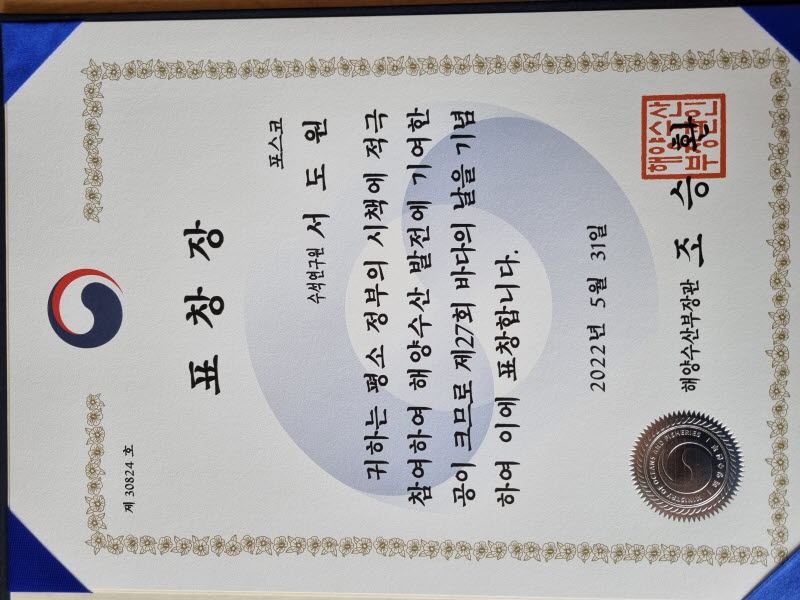 제 30824 호
표창장
포스코
수석연구원 서도원
귀하는 평소 정부의 시책에 적극
참여하여 해양수산 발전에 기여한
공이 크므로 제27회 바다의 날을 기념
하여 이에 표창합니다.
2022년 5월 31일
해양수산부장관 조승환
해양수산
부장관인
MINISTRY OF OCEANS AND FISHERIES
해양수산부